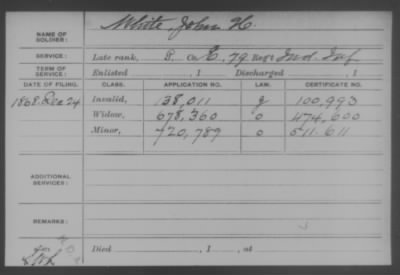 NAME OF SOLDIER: White, John H.
SERVICE: Late rank, P. Co. E, 79 Reg't Ind. Inf
TERM OF SERVICE: Enlisted , 1 Discharged , 1
DATE OF FILING. CLASS. APPLICATION NO. LAW. CERTIFICATE NO.
1868. Dec 24 Invalid, 138,011 100,993
Widow, 678,360 o 474,600
Minor, 720,789 o 511.611
ADDITIONAL SERVICES:
REMARKS:
Died , 1 , at